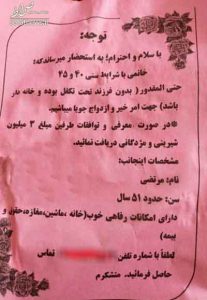 توجه:
با سلام و احترام؛ به استحضار میرساندکه:
خانمی با شرایط سنی ۴۰ و ۴۵
حتی المقدور( بدون فرزند تحت تکفل بوده و خانه دار
باشد) جهت امر خیر و ازدواج جویا میباشیم.
*در صورت معرفی و توافقات طرفین مبلغ ۳ میلیون
شیرینی و مژدگانی دریافت نمائید.
مشخصات اینجانب:
نام: مرتضی
سن: حدود ۵۱ سال
دارای امکانات رفاهی خوب(خانه ،ماشین،مغازه،حقوق و
بیمه)
لطفاً با شماره تلفن تماس
حاصل فرمائید. متشکرم